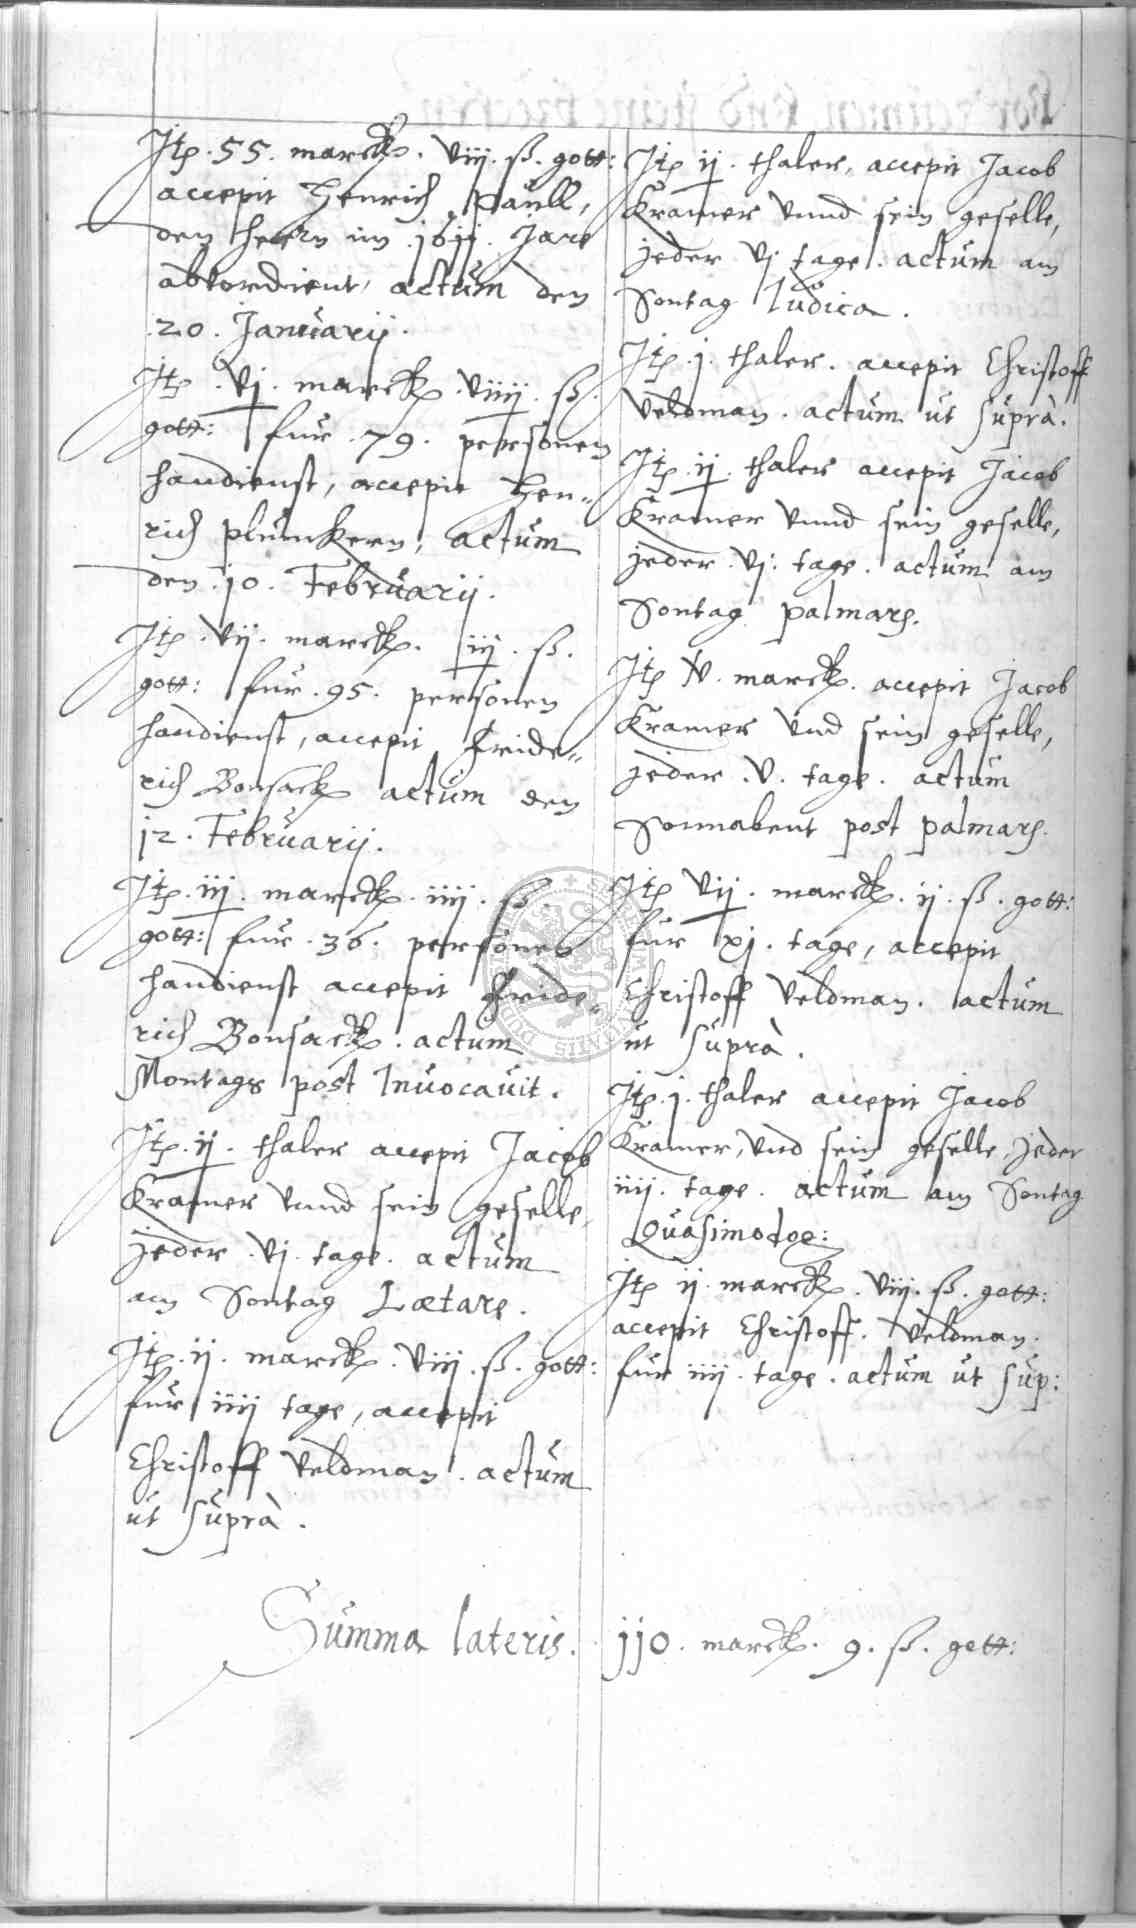 Itē. 55. marck. viij. ß. gott:
accepit Henrich Paull,
den herrn im 1611. Jare
abverdient, actum den
20. Januarij.
Itē. vj. marck. viiij. ß.
gott: fur. 79. personen
handienst, accepit Hen-
rich plumkern, actum
den. 10. Februarij.
Itē. vij. marck. iij. ß.
gott: fur. 95. personen
handienst, accepit Fride-
rich Bonsack actum den
12. Februarij.
Itē. iij. marck. iiij. ß.
gott: fur. 36. personen
handienst accepit Fride-
rich Bonsack. actum
Montags post Invocavit.
Itē. ij. thaler accepit Jacob
Kramer vnnd sein geselle,
jeder. vj. tage. actum
am Sontag Lætare.
Itē. ij. marck. viij. ß. gott:
fur iiij tage, accepit
Christoff Veldman. actum
ut suprà.
Itē ij. thaler, accepit Jacob
Kramer vnnd sein geselle,
jeder vj tage. actum am
Sontag Iudica.
Itē. j. thaler. accepit Christoff
Veldman. actum ut suprà.
Itē. ij. thaler accepit Jacob
Kramer vnnd sein geselle,
jeder. vj. tage. actum am
Sontag palmarē.
Itē v. marck. accepit Jacob
Kramer vnd sein geselle,
jeder. v. tage. actum
Sonnabent post palmarē.
Itē vij. marck. ij. ß. gott:
fur xj. tage, accepit
Christoff Veldman. actum
ut suprà.
Itē. j. thaler accepit Jacob
Kramer, vnd sein geselle, jeder
iiij. tage. actum am Sontag
Quasimodog:
Itē ij. marck. viij. ß. gott:
accepit Christoff. Veldman.
fur iiij. tage. actum ut sup:
Summa lateris. 110. marck. 9. ß. gott: